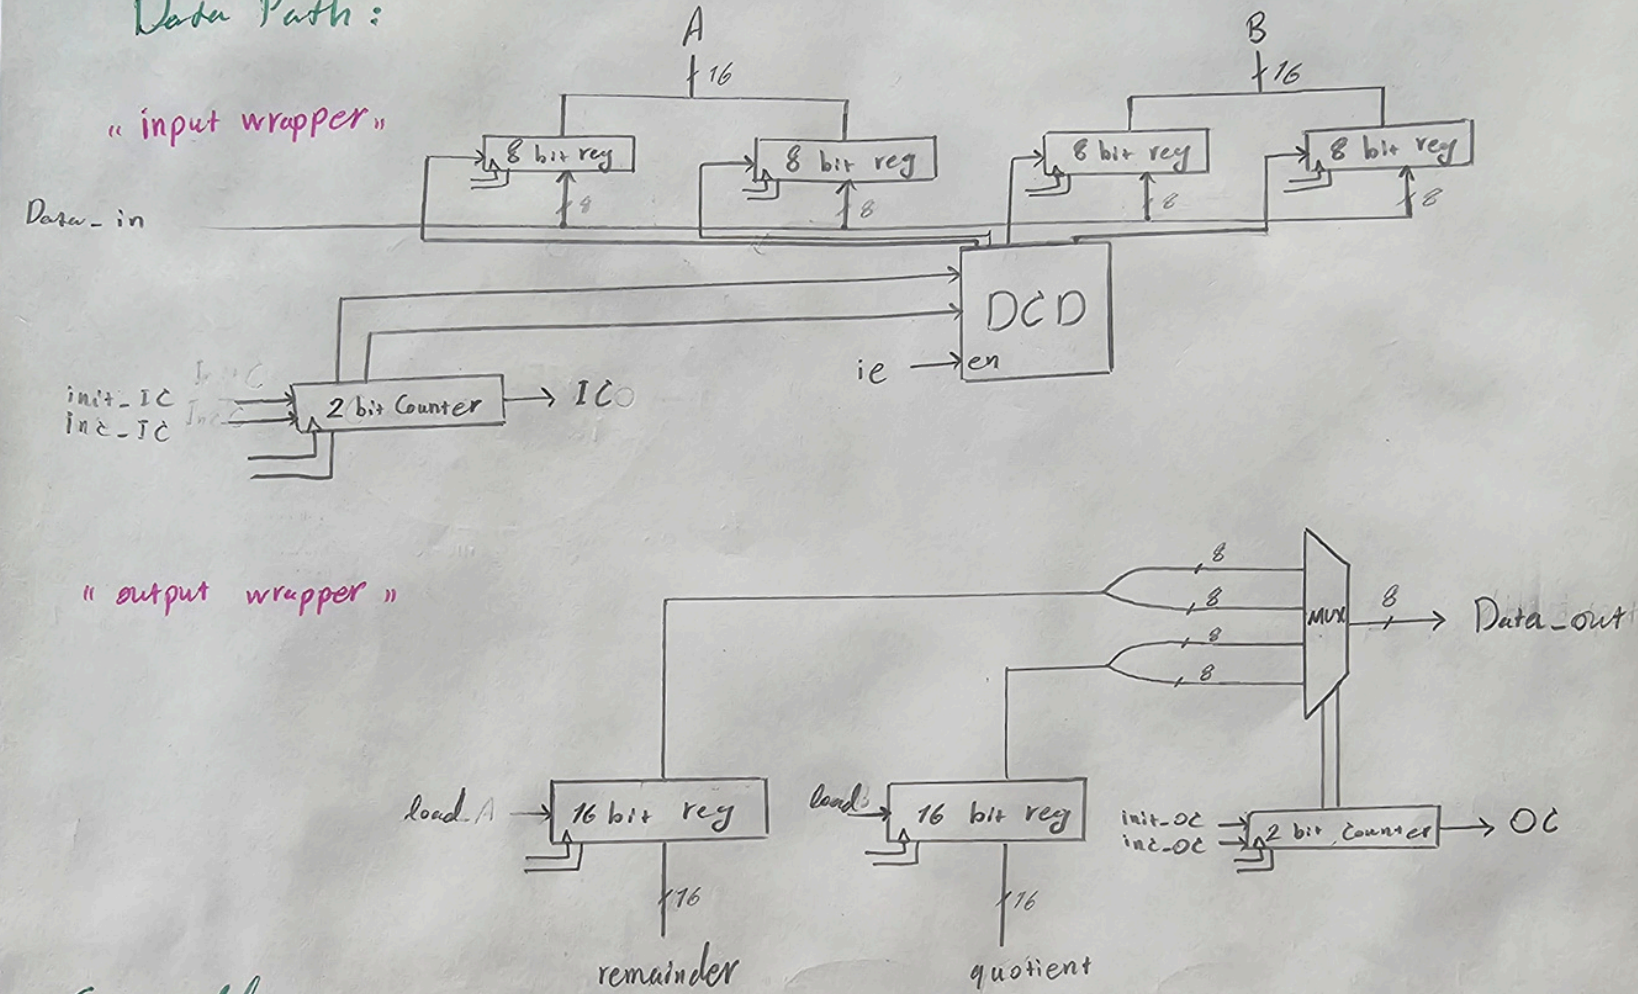 Data Path:
A
B
16
16
" input wrapper "
8 bit reg
8 bit reg
8 bit reg
8 bit reg
8
8
8
8
Data_in
DCD
ie
en
init_IC
inc_IC
2 bit Counter
IC
" output wrapper "
8
8
8
8
MUX
8
Data_out
load
16 bit reg
load
16 bit reg
init_OC
inc_OC
2 bit Counter
OC
16
16
remainder
quotient